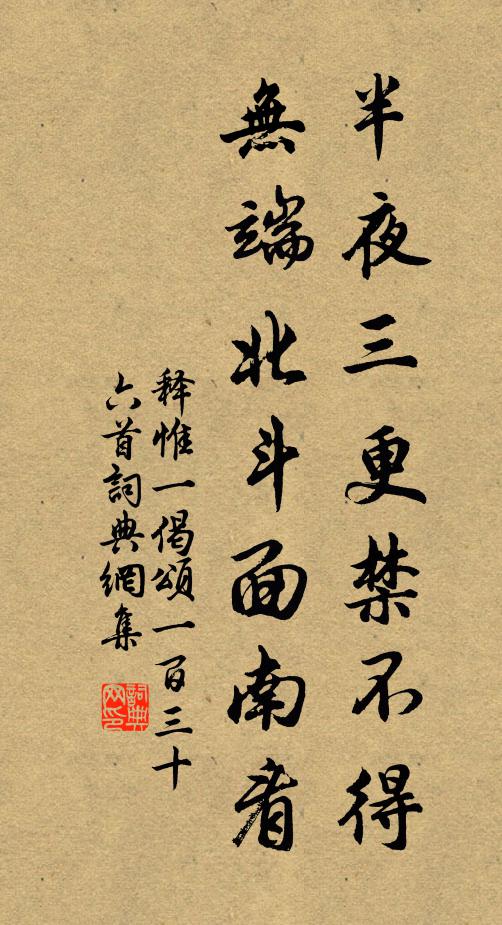 半夜三更禁不得
無端北斗面南看
释惟一偈頌一百三十
六首詞典網集
詞典
网印